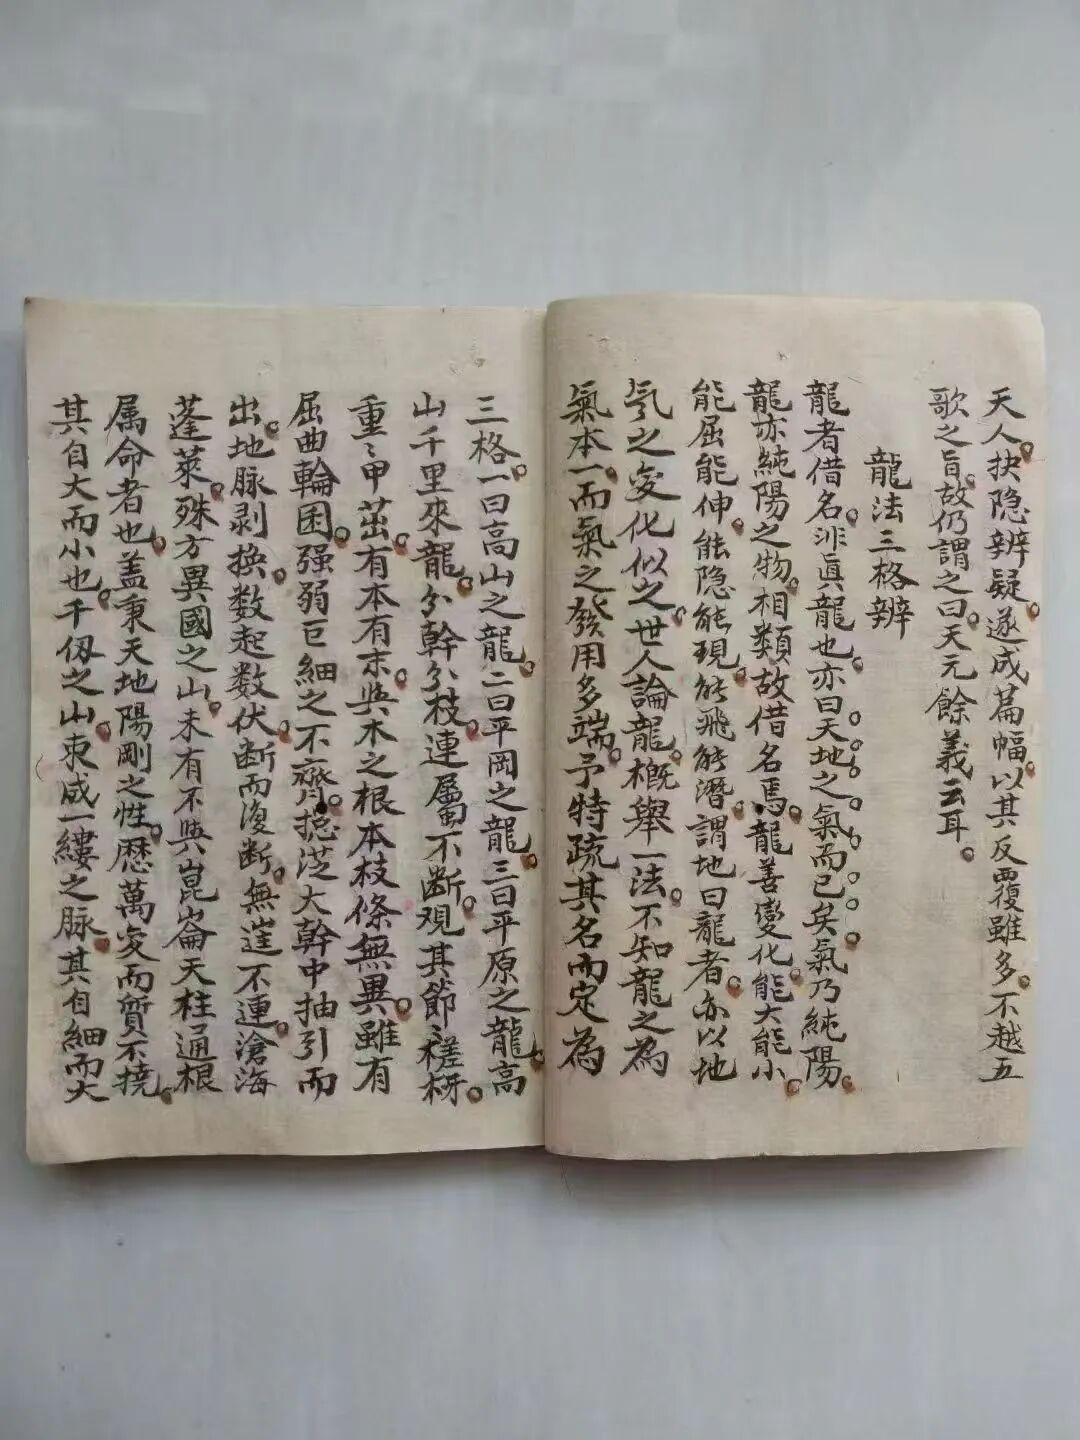 天人抉隐辨疑。遂成篇幅。以其反覆雖多。不越五
歌之旨。故仍謂之曰。天元餘義云耳。
龍法三格辨
龍者借名。非眞龍也。亦曰天地之氣而已矣。氣乃純陽。
龍亦純陽之物。相類故借名焉。龍善變化。能大能小。
能屈能伸。能隐能現。能飛能潛。謂地曰龍者。亦以地
氣之変化似之。世人論龍。概舉一法。不知龍之為
氣本一。而氣之發用多端。予特疏其名而定為
三格。一曰高山之龍。二曰平岡之龍。三曰平原之龍。高
山千里來龍。分幹分枝。連屬不断。观其節〻槎枒。
重〻甲茁。有本有末。與木之根本枝條無異。雖有
屈曲輪囷。强弱巨細之不齊。揔從大幹中抽引而
出。地脉剥換。数起数伏。断而復断。無㞷不連。滄海
蓬萊。殊方異國之山。未有不與崑崙天柱通根
属命者也。盖秉天地陽剛之性。歷萬変而質不撓。
其自大而小也。千仭之山。束成一縷之脉。其自細而大